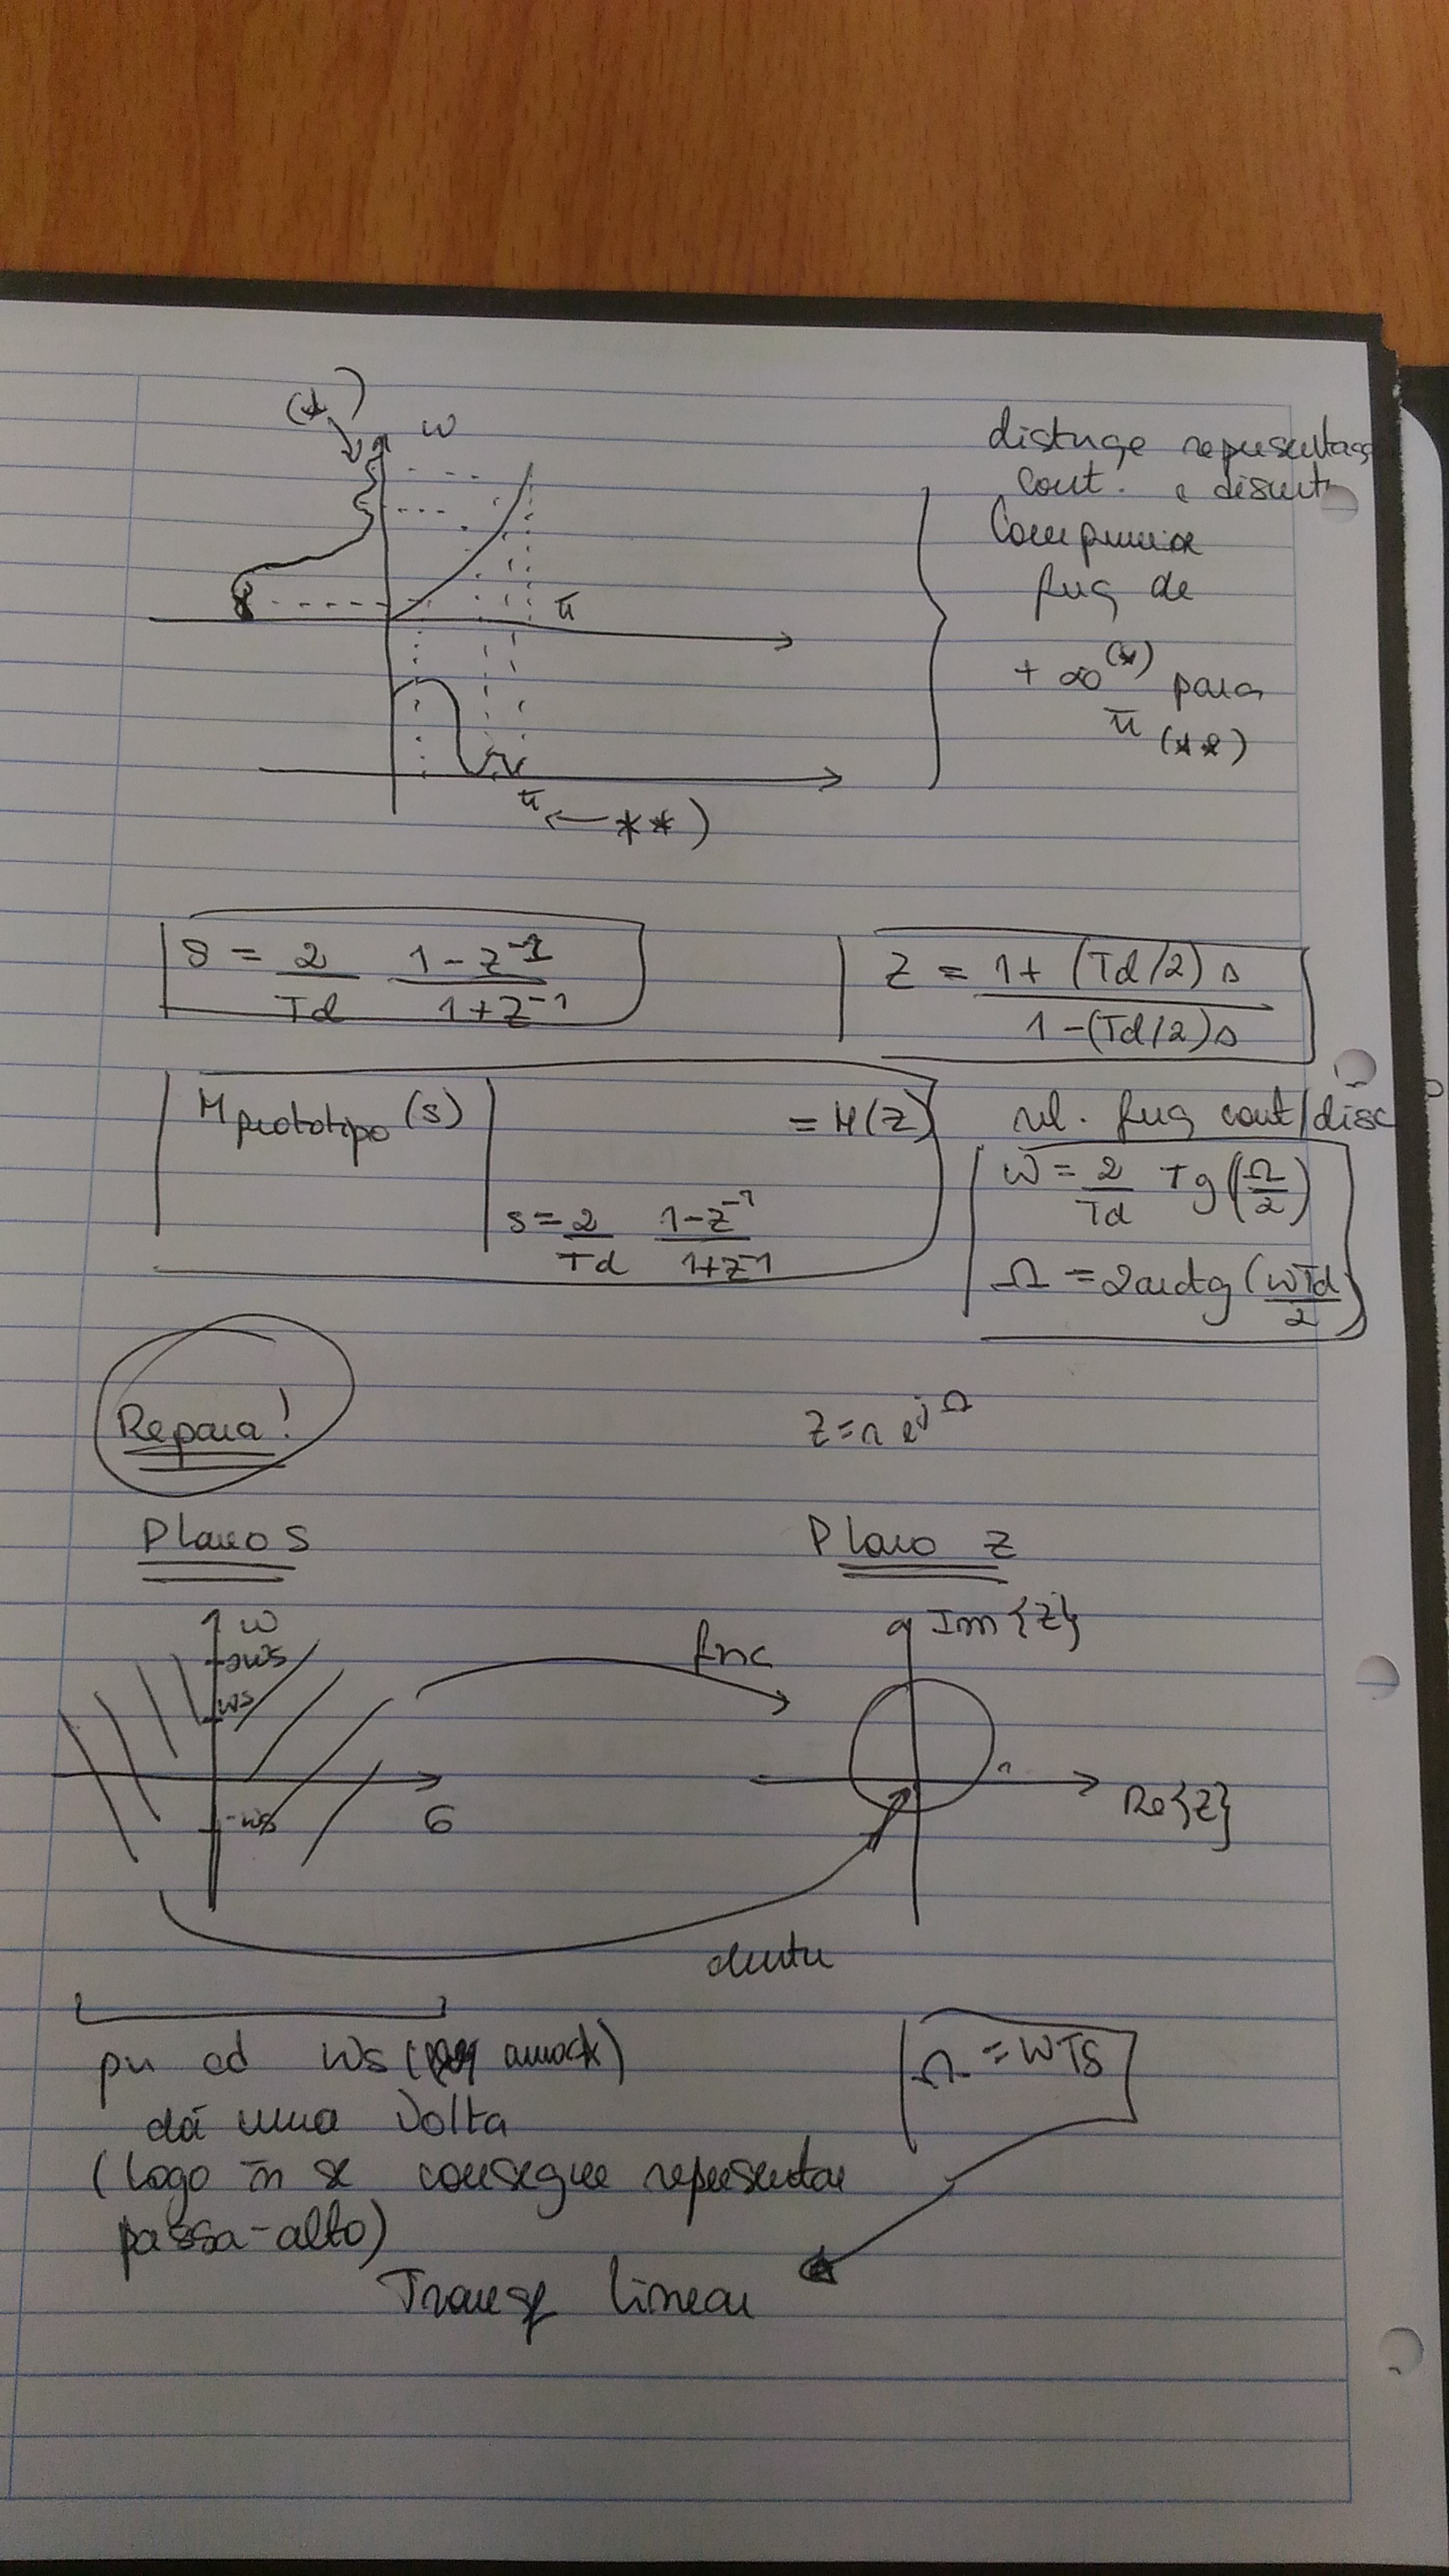 (*)
ω
π
π ← **)
distorçe representaçã
cont. e discreta
Comprime
freq de
+ ∞ (*) para
π (**)
s = 2/Td (1-z^-1)/(1+z^-1)
z = (1+(Td/2)s)/(1-(Td/2)s)
Hprototipo(s) | s=2/Td (1-z^-1)/(1+z^-1) = H(z)
rel. freq cont/disc
ω = 2/Td Tg(Ω/2)
Ω = 2arctg(ωTd/2)
Repara!
z = r e^jΩ
Plano s
Plano z
ω
2ωs
ωs
-ωs
σ
Im{z}
Re{z}
dentro
por cd ωs (freq amostr)
dá uma volta
(logo ñ se consegue representar
passa-alto)
Ω = ωTs
Transf linear